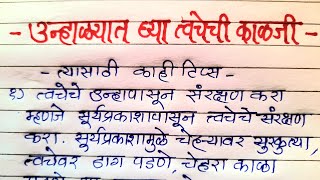 - उन्हाळ्यात घ्या त्वचेची काळजी -
- त्यासाठी काही टिप्स -
१) त्वचेचे उन्हापासून संरक्षण करा
म्हणजे सूर्यप्रकाशापासून त्वचेचे संरक्षण
करा. सूर्यप्रकाशामुळे चेहऱ्यावर सुरकुत्या,
त्वचेवर डाग पडणे, चेहरा काळा